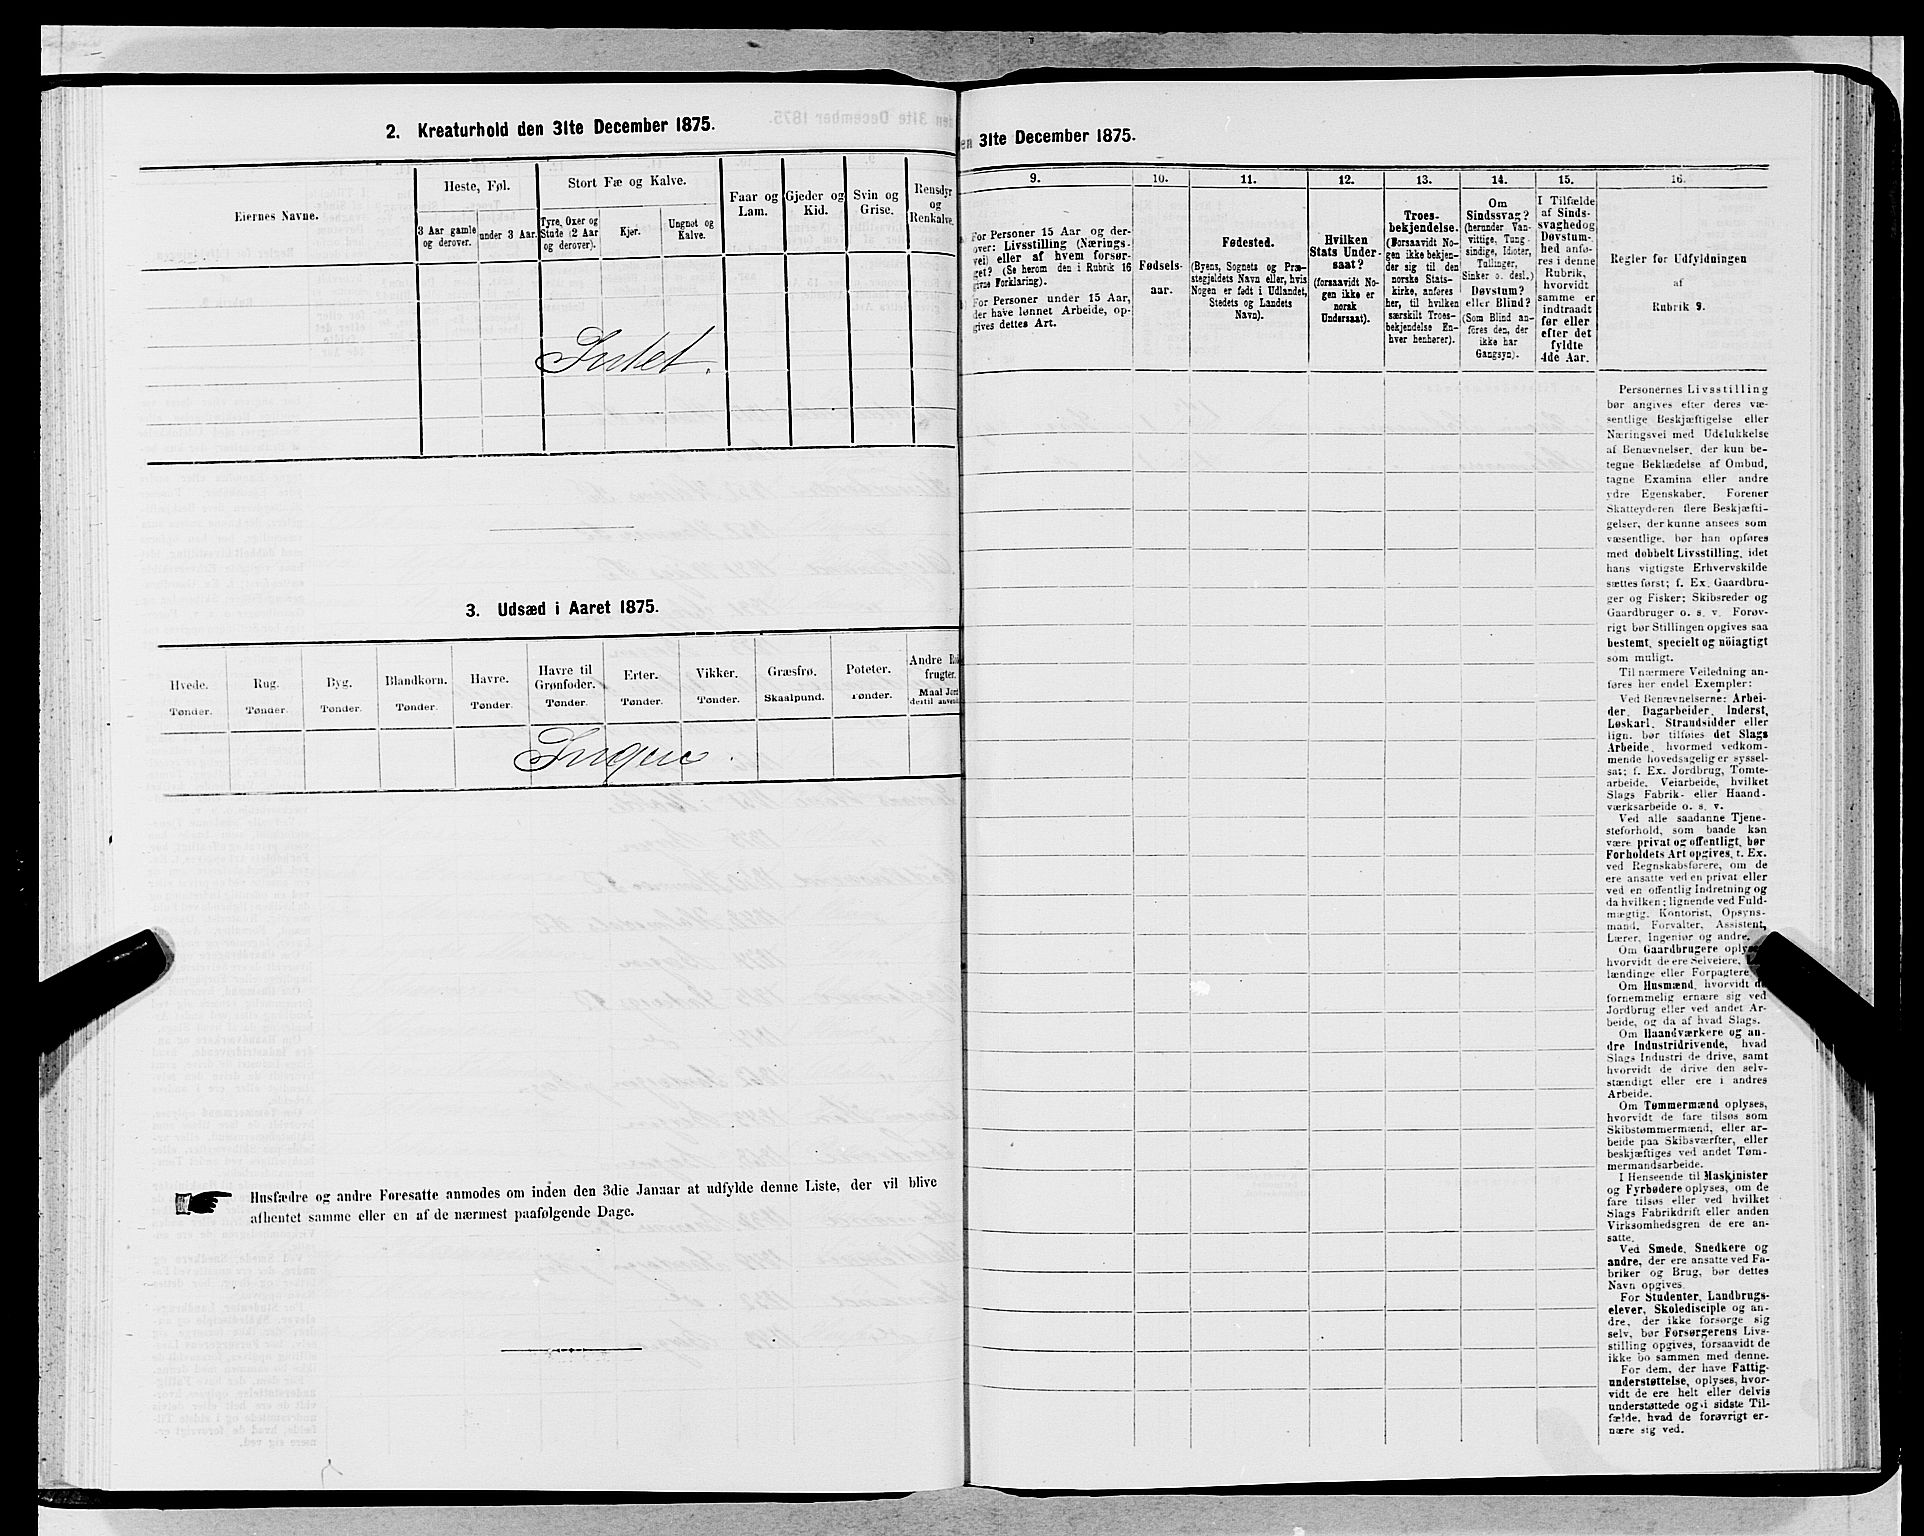 2. Kreaturhold den 31te December 1875.
Eiernes Navne.
Heste, Føl.
3 Aar gamle
og derover.
under 3 Aar.
Stort Fæ og Kalve.
Tyre, Oxer og
Stude (2 Aar
og derover).
Kjer.
Ungnøt og
Kalve.
Faar og
Lam.
Gjeder og
Kid.
Svin og
Grise.
Rensdyr
og
Renkalve.
Intet.
3. Udsæd i Aaret 1875.
Hvede.
Tønder.
Rug.
Tønder.
Byg.
Tønder.
Blandkorn.
Tønder.
Havre.
Tønder.
Havre til
Grønfoder.
Tønder.
Erter.
Tønder.
Vikker.
Tønder.
Græsfrø.
Skaalpund.
Poteter.
Tønder.
Andre
frugter.
Maal Jord
dertil
Ingen.
Husfædre og andre Foresatte anmodes om inden den 3die Januar at udfylde denne Liste, der vil blive
afhentet samme eller en af de nærmest paafølgende Dage.
31te December 1875.
9.
For Personer 15 Aar og der-
over: Livsstilling (Nærings-
vei) eller af hvem forsør-
get? (Se herom den i Rubrik 16
givne Forklaring).
For Personer under 15 Aar,
der have lønnet Arbeide, op-
gives dettes Art.
10.
Fødsels-
aar.
11.
Fødested.
(Byens, Sognets og Præ-
stegjeldets Navn eller, hvis
Nogen er født i Udlandet,
Stedets og Landets
Navn).
12.
Hvilken
Stats Under-
saat?
(forsaavidt No-
gen ikke er
norsk
Undersaat).
13.
Troes-
bekjendelse.
(Forsaavidt No-
gen ikke bekjen-
der sig til den
norske Stats-
kirke, anføres
her, til hvilken
særskilt Troes-
bekjendelse En-
hver henhører).
14.
Om
Sindssvag?
(herunder Van-
vittige, Tung-
sindige, Idioter,
Tullinger,
Sinker o. desl.)
Døvstum?
eller Blind?
(Som Blind an-
føres den, der
ikke har
Gangsyn).
15.
I Tilfælde
af Sinds-
svaghed og
Døvstum-
hed anfø-
res i denne
Rubrik,
hvorvidt
samme er
indtraadt
før eller
efter det
fyldte
4de Aar.
16.
Regler før Udfyldningen
af
Rubrik 9.
Personernes Livsstilling
bør angives efter deres væ-
sentlige Beskjæftigelse eller
Næringsvei med Udelukkelse
af Benævnelser, der kun be-
tegne Beklædelse af Ombud,
tagne Examina eller andre
ydre Egenskaber. Forener
Skatteyderen flere Beskjæfti-
gelser, der kunne ansees som
væsentlige, bør han opføres
med dobbelt Livsstilling, idet
hans vigtigste Erhvervskilde
sættes først; f. Ex. Gaardbru-
ger og Fisker; Skibsreder og
Gaardbruger o. s. v. Forøv-
rigt bør Stillingen opgives saa
bestemt, specielt og nöiagtigt
som muligt.
Til nærmere Veiledning an-
føres her endel Exempler:
Ved Benævnelserne: Arbei-
der, Dagarbeider, Inderst,
Løskarl, Strandsidder eller
lign. bør tilføies det Slags
Arbeide, hvormed vedkom-
mende hovedsagelig er syssel-
sat; f. Ex. Jordbrug, Tomte-
arbeide, Veiarbeide, hvilket
Slags Fabrik- eller Haand-
værksarbeide o. s. v.
Ved alle saadanne Tjene-
steforhold, som baade kan
være privat og offentligt, bør
Forholdets Art opgives, t. Ex.
ved Regnskabsførere, om de
ere ansatte ved en privat eller
ved en offentlig Indretning og
da hvilken; lignende ved Fuld-
mægtig, Kontorist, Opsyns-
mand, Forvalter, Assistent,
Lærer, Ingeniør og andre.
Om Gaardbrugere oplyses,
hvorvidt de ere Selveiere,
lændinge eller Forpagtere
Om Husmænd, hvorvidt de
fornemmelig ernære sig ved
Jordbrug eller ved andet Ar-
beide, og da af hvad Slags.
Om Haandværkere og an-
dre Industridrivende, hvad
Slags Industri de drive, samt
hvorvidt de drive den selv-
stændigt eller ere i andres
Arbeide.
Om Tømmermænd oplyses,
hvorvidt de fare tilsøs som
Skibstømmermænd, eller ar-
beide paa Skibsværfter, eller
beskjæftiges ved andet Tøm-
mermandsarbeide.
I Henseende til Maskinister
og Fyrbødere oplyses, om de
fare tilsøs eller ved hvilket
Slags Fabrikdrift eller anden
Virksomhedsgren de ere an-
satte.
Ved Smede, Snedkere og
andre, der ere ansatte ved Fa-
briker og Brug, bør dettes
Navn opgives
For Studenter, Landbrugs-
elever, Skoledisciple og an-
dre, der ikke forsørge sig
selv, bør Forsørgerens Livs-
stilling opgives, forsaavidt de
ikke bo sammen med denne.
For dem, der have Fattig-
understøttelse, oplyses, hvor-
vidt de ere helt eller delvis
understøttede og i sidste Til-
fælde, hvad de forøvrigt er-
nære sig ved.